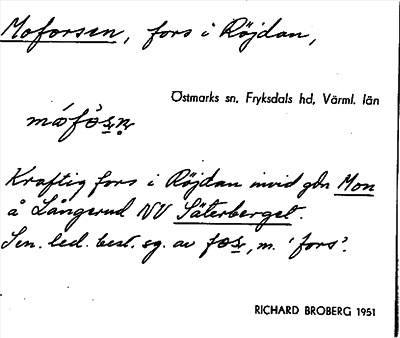 Moforsen, fors i Röjdan,
Östmarks sn, Fryksdals hd, Värml. län
Kraftig fors i Röjdan invid gdn Mon
å Långerud NV Säterberget.
Sen. led. best. sg. av fɷs̱, m. 'fors'.
RICHARD BROBERG 1951